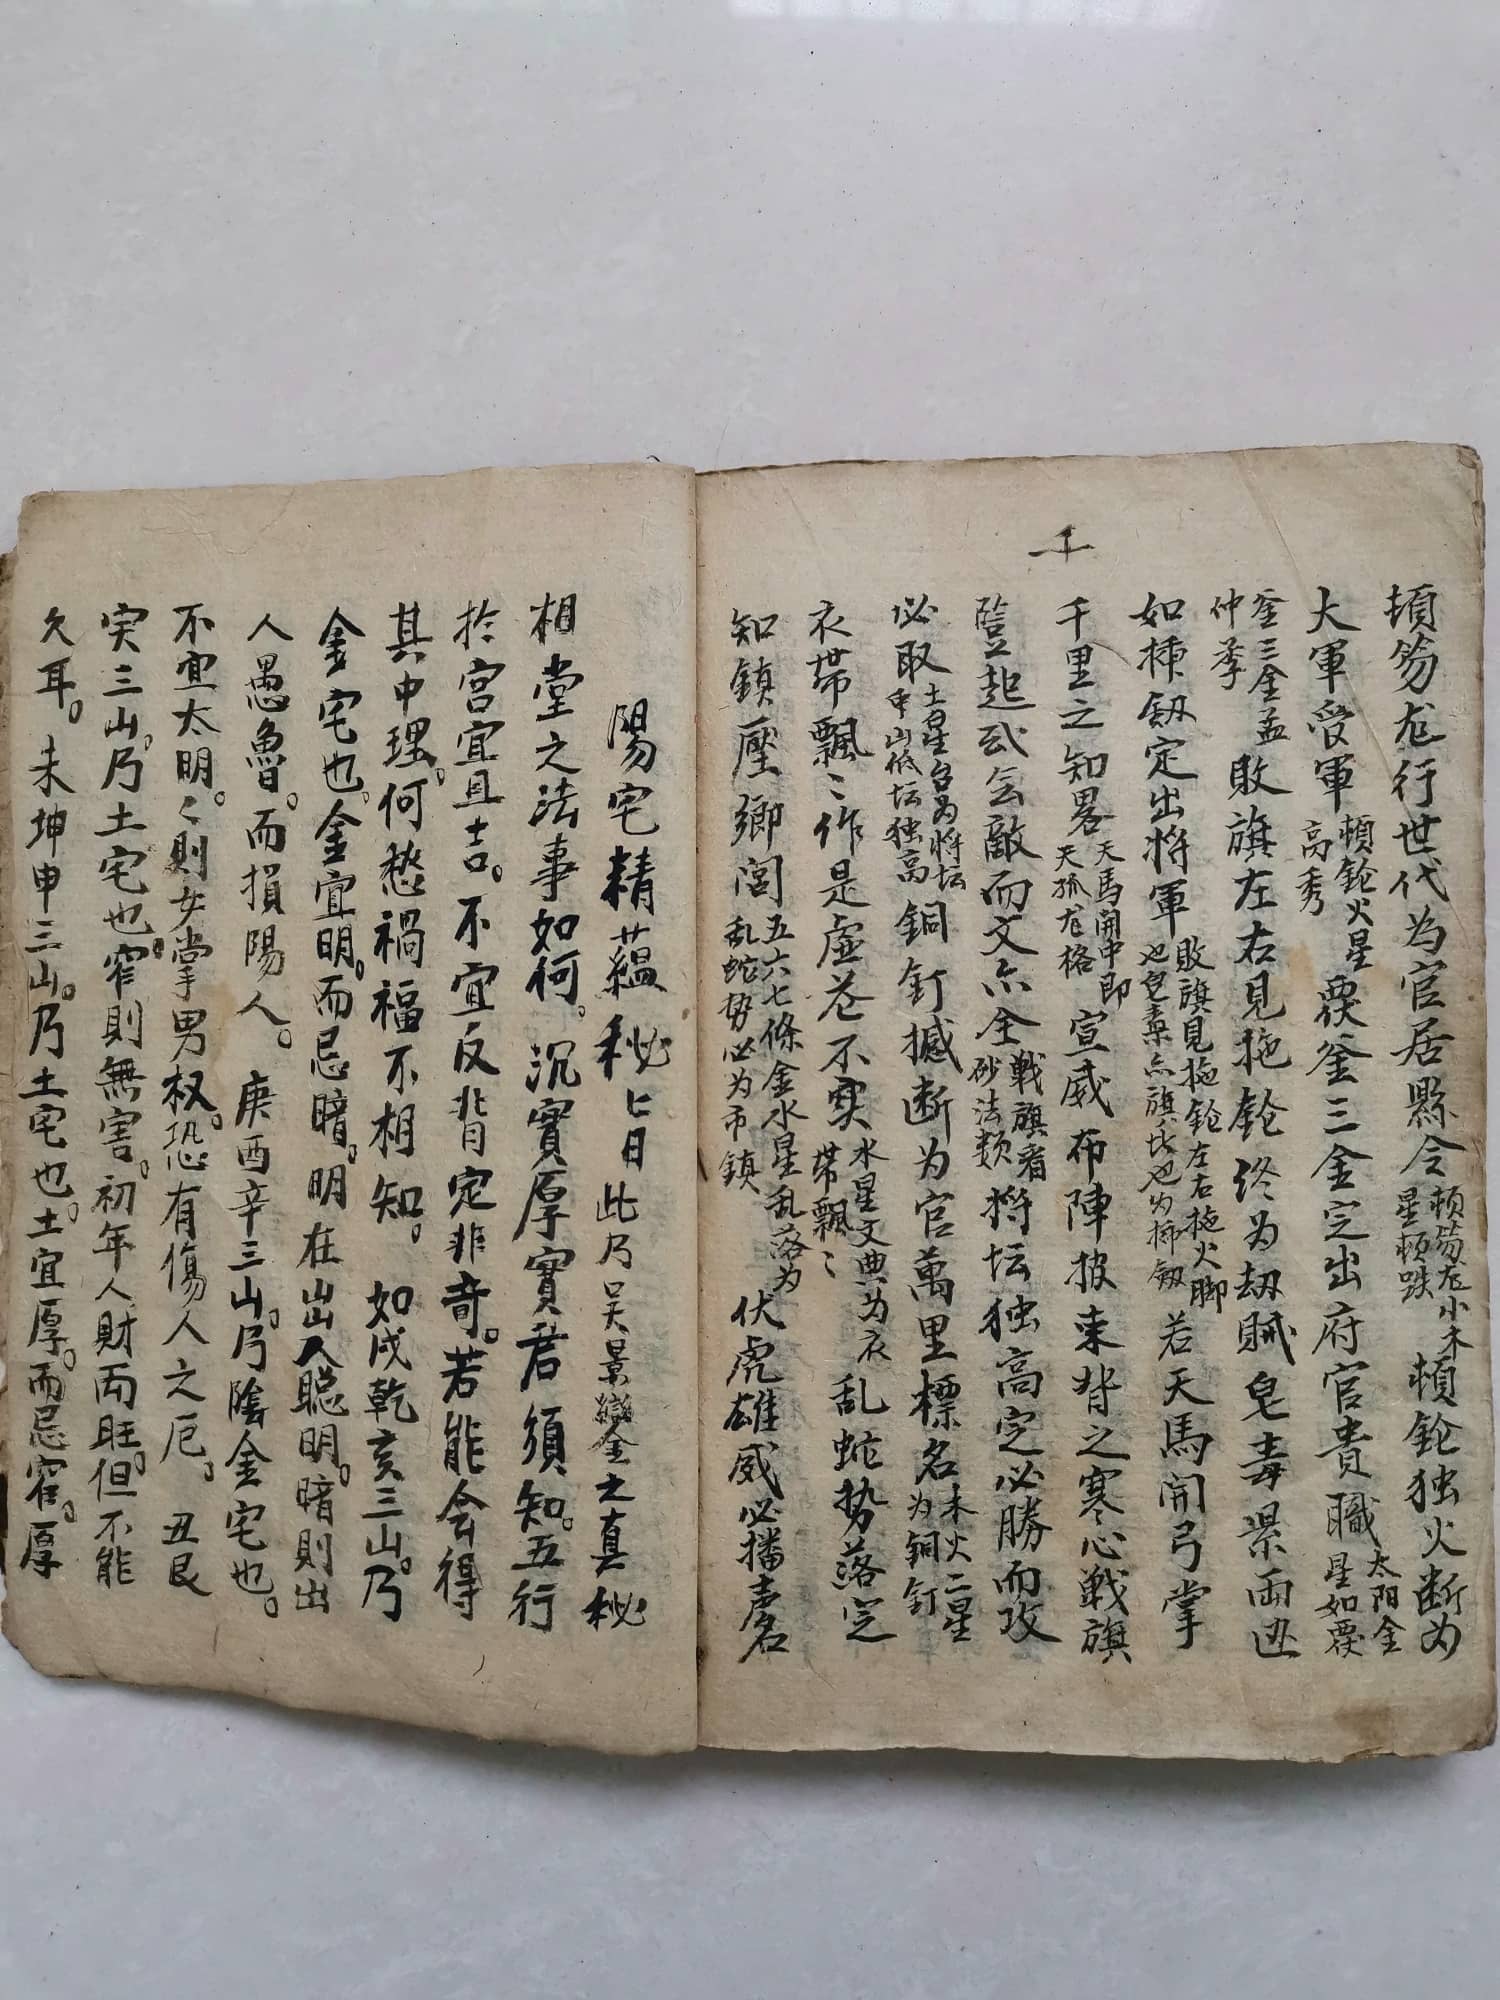 頓笏龙行世代为官居縣令頓笏龙小木星頓跌頓鎗独火断为
大軍受軍頓鎗火星高秀覆釜三金定出府官貴職太阳金星如覆
釜三金孟仲季敗旗左右見拖鎗终为刼賊皂毒景雨
如揷劔定出将軍敗旗見拖鎗左右拖火脚也皂毒点旗氏也为揷劔若天馬開弓掌
千里之知畧天馬開中即天孤龙格宣威布陣披束背之寒心戦旗
竖起武会敵而文亦全戦旗看砂法類将坛独高定必勝而攻
必取土星名为将坛中山低坛独高銅釘撼断为官萬里標名木火二星为銅釘
衣帯飄〻作是虚花不实水星文曲为衣帯飄〻乱蛇势落定
知鎮壓鄉閭五六七條金水星乱落为乱蛇势必为市鎮伏虎雄威必播声名
陽宅精蘊秘匕曰此乃吴景鸞金之真秘
相堂之法事如何。沉實厚實君須知。五行
於宫宜且吉。不宜反背定非奇。若能会得
其中理。何愁禍福不相知。如戌乾亥三山。乃
金宅也。金宜明。而忌暗。明在出入聪明。暗則出
人愚魯。而損陽人。庚酉辛三山。乃陰金宅也。
不宜太明。〻則女掌男权。恐有傷人之厄。丑艮
寅三山。乃土宅也。窄則無害。初年人財両旺。但不能
久耳。未坤申三山。乃土宅也。土宜厚。而忌窄。厚